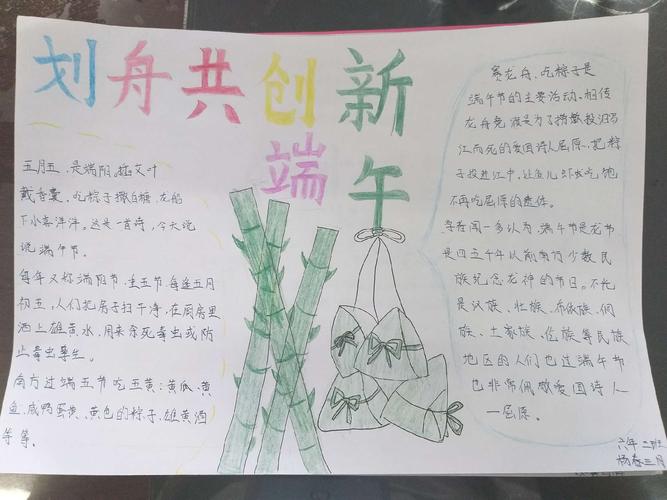 划舟共创新
端午
五月五,是端阳。插艾叶
戴香囊,吃粽子撒白糖,龙船
下水喜洋洋。这是一首诗,今天说
说端午节。
每年又称端阳节、重五节,每逢五月
初五,人们把房子扫干净,在厨房里
洒上雄黄水,用来杀死毒虫或防
止毒虫孳生。
南方过端五节吃五黄:黄瓜、黄
鱼、咸鸭蛋黄、黄色的粽子、雄黄酒
等等。
赛龙舟、吃粽子是
端午节的主要活动。相传
龙舟竞渡是为了捞救投汨罗
江而死的爱国诗人屈原,把粽
子投进江中,让鱼儿虾吃饱
不再吃屈原的遗体。
学者闻一多认为,端午节是龙节
是四五千年以前南方少数民
族纪念龙神的节日。不光
是汉族、壮族、布依族、侗
族、土家族、仡族等民族
地区的人们也过端午节
也非常佩敬爱国诗人
屈原。
六年二班
杨春三月